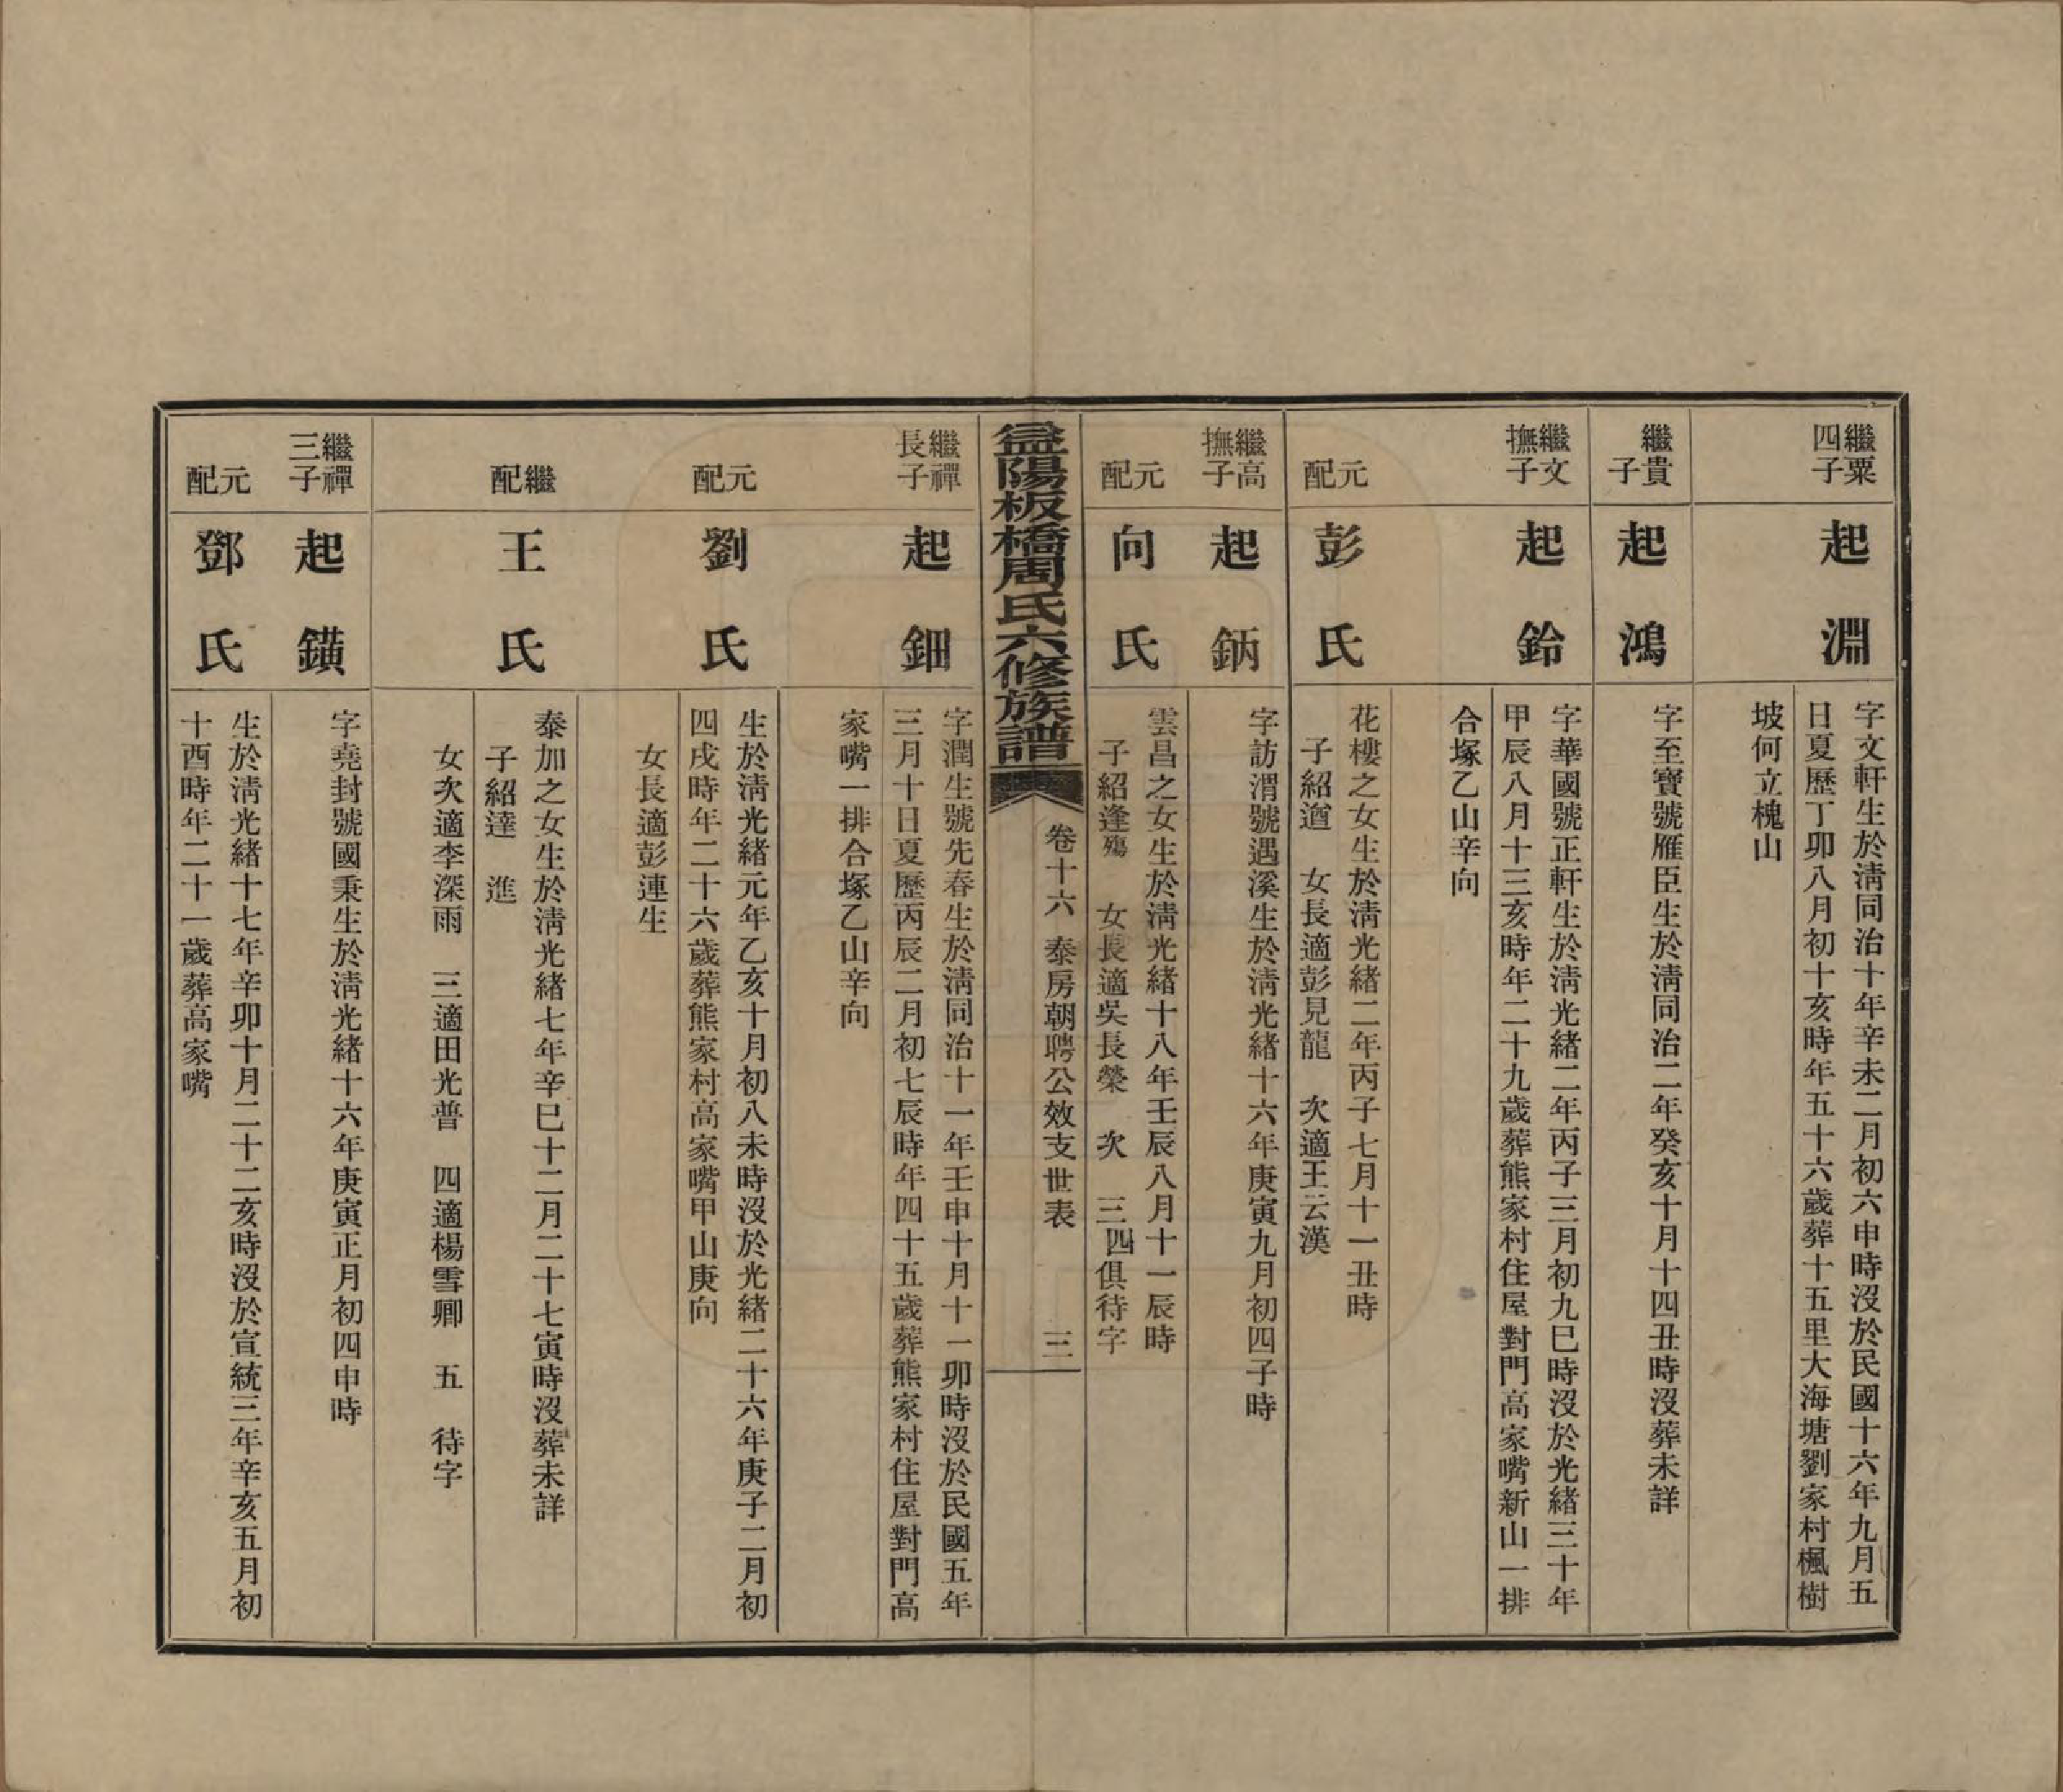 繼粟四子
起淵
字文軒生於淸同治十年辛未二月初六申時沒於民國十六年九月五
日夏歷丁卯八月初十亥時年五十六歲葬十五里大海塘劉家村楓樹
坡何立槐山
繼貴子
起鴻
字至寶號雁臣生於淸同治二年癸亥十月十四丑時沒葬未詳
繼文撫子
起鈴
字華國號正軒生於淸光緒二年丙子三月初九巳時沒於光緒三十年
甲辰八月十三亥時年二十九歲葬熊家村住屋對門高家嘴新山一排
合塚乙山辛向
元配
彭氏
花樓之女生於淸光緒二年丙子七月十一丑時
子紹遒　女長適彭見龍　次適王云漢
繼高撫子
起鈵
字訪渭號遇溪生於淸光緒十六年庚寅九月初四子時
元配
向氏
雲昌之女生於淸光緒十八年壬辰八月十一辰時
子紹逢殤　女長適吳長榮　次　三　四俱待字
益陽板橋周氏六修族譜
卷十六　泰房朝聘公效支世表　三
繼禪長子
起鈿
字潤生號先春生於淸同治十一年壬申十月十一卯時沒於民國五年
三月十日夏歷丙辰二月初七辰時年四十五歲葬熊家村住屋對門高
家嘴一排合塚乙山辛向
元配
劉氏
生於淸光緒元年乙亥十月初八未時沒於光緒二十六年庚子二月初
四戌時年二十六歲葬熊家村高家嘴甲山庚向
女長適彭連生
繼配
王氏
泰加之女生於淸光緒七年辛巳十二月二十七寅時沒葬未詳
子紹達　進
女次適李深雨　三適田光普　四適楊雪卿　五　待字
繼禪三子
起鐄
字堯封號國秉生於淸光緒十六年庚寅正月初四申時
元配
鄧氏
生於淸光緒十七年辛卯十月二十二亥時沒於宣統三年辛亥五月初
十酉時年二十一歲葬高家嘴